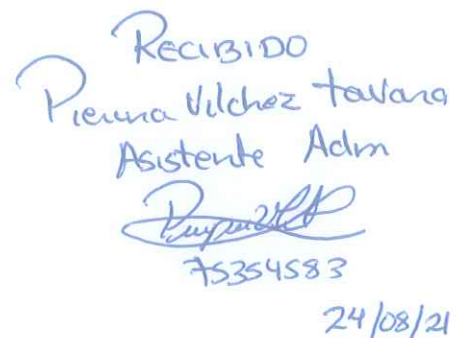 RECIBIDO
Pierina Vilchez Tavara
Asistente Adm
75354583
24/08/21